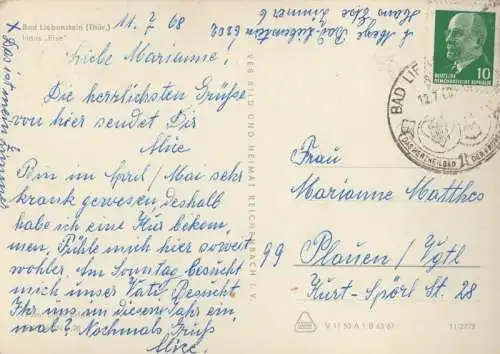 Bad Liebenstein (Thür.)
Haus „Else"
x Das ist mein Zimmer
11. 7. 68
Liebe Marianne,
Die herrlichsten Grüße
von hier sendet Dir
Alice
Bin im April / Mai sehr
krank gewesen, deshalb
habe ich eine Kur bekom-
men. Fühle mich hier soweit
wohler. Am Sonntag besucht
mich unser Vati. Besucht
Ihr uns in diesem Jahr ein-
mal? Nochmals Grüße
Alice.
Bad Liebenstein 6202
Haus Else Zimmer 6
VEB BILD UND HEIMAT REICHENBACH I. V.
DEUTSCHE
DEMOKRATISCHE REPUBLIK
10
BAD LIE
12.7.68
DAS HERZHEILBAD
Frau
Marianne Matthes
99 Plauen / Vgtl
Kurt-Spörl St. 28
V 11 50 A 1 B 63/67
11/2772